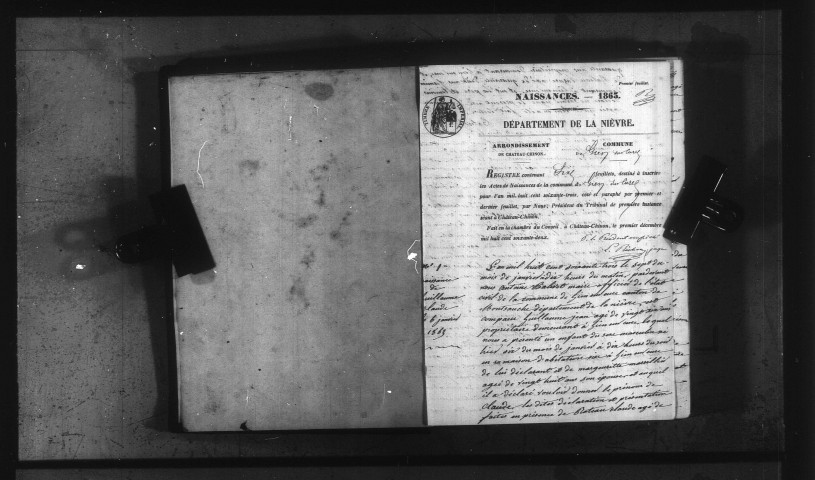 Premier feuillet.
NAISSANCES. — 1863.
DÉPARTEMENT DE LA NIÈVRE.
ARRONDISSEMENT
DE CHATEAU-CHINON.
COMMUNE
REGISTRE contenant feuillets, destiné à inscrire
les Actes de Naissances de la commune d
pour l'an mil huit cent soixante-trois, coté et paraphé par premier et
dernier feuillet, par Nous, Président du Tribunal de première Instance
séant à Château-Chinon.
Fait en la chambre du Conseil, à Château-Chinon, le premier décembre
mil huit cent soixante-deux.
N° 1
naissance
de
Guillaume
Claude
6 janvier
1863
L'an mil huit cent soixante trois le sept du
mois de janvier à dix heures du matin, pardevant
nous Antoine maire officier de l'état
civil de la commune de Gien sur cure canton de
Montsauche département de la nièvre, est
comparu Guillaume jean agé de vingt
propriétaire demeurant à Gien sur cure, lequel
nous a présenté un enfant du sexe masculin né
hier six du mois de janvier à dix heures du soir
en sa maison d'habitation sise à Gien sur cure
de lui déclarant et de marguerite
agée de vingt huit ans son épouse, et auquel
il a déclaré vouloir donner le prénom de
Claude les dites déclaration et présentation
faites en présence de claude agé de